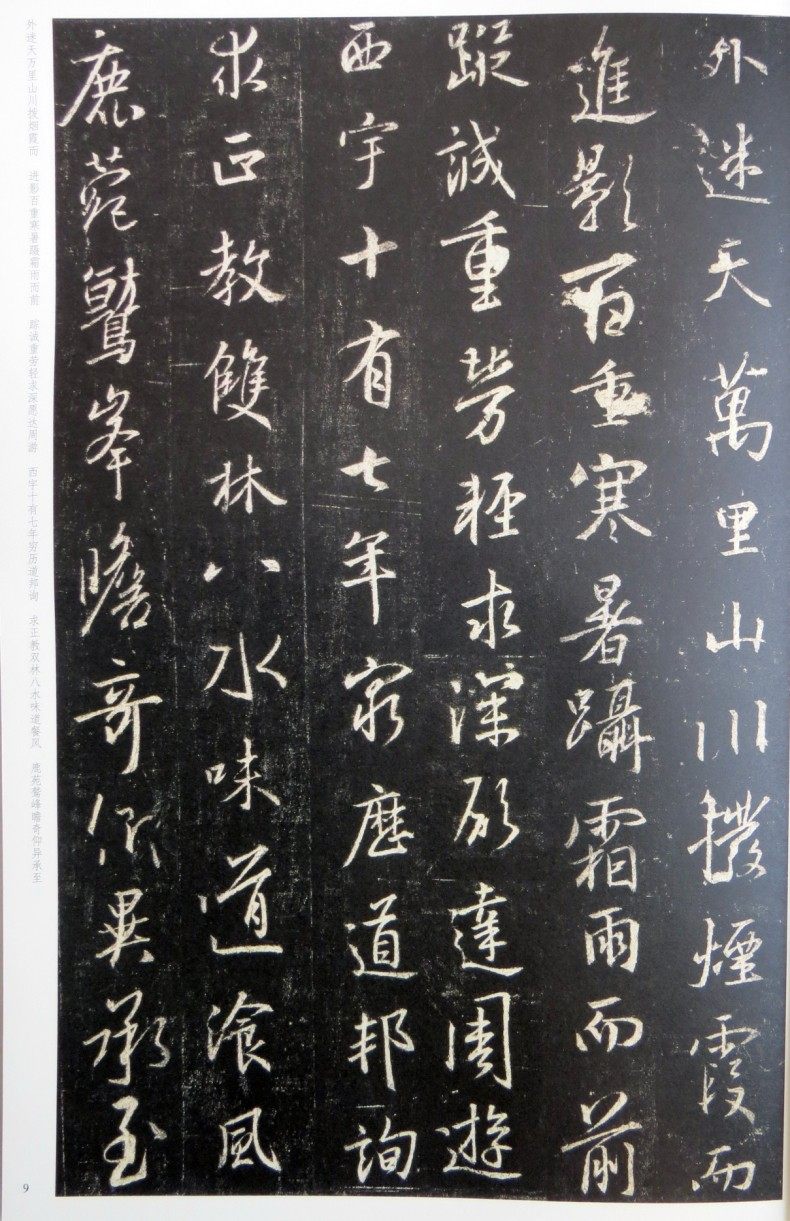 外迷天萬里山川撥煙霞而
進影百重寒暑躡霜雨而前
蹤誠重勞輕求深願達周遊
西宇十有七年窮歷道邦詢
求正教雙林八水味道湌風
鹿菀鷲峯瞻奇仰異承至
外迷天万里山川拨烟霞而 进影百重寒暑蹑霜雨而前 踪诚重劳轻求深愿达周游 西宇十有七年穷历道邦询 求正教双林八水味道餐风 鹿苑鹫峰瞻奇仰异承至
9